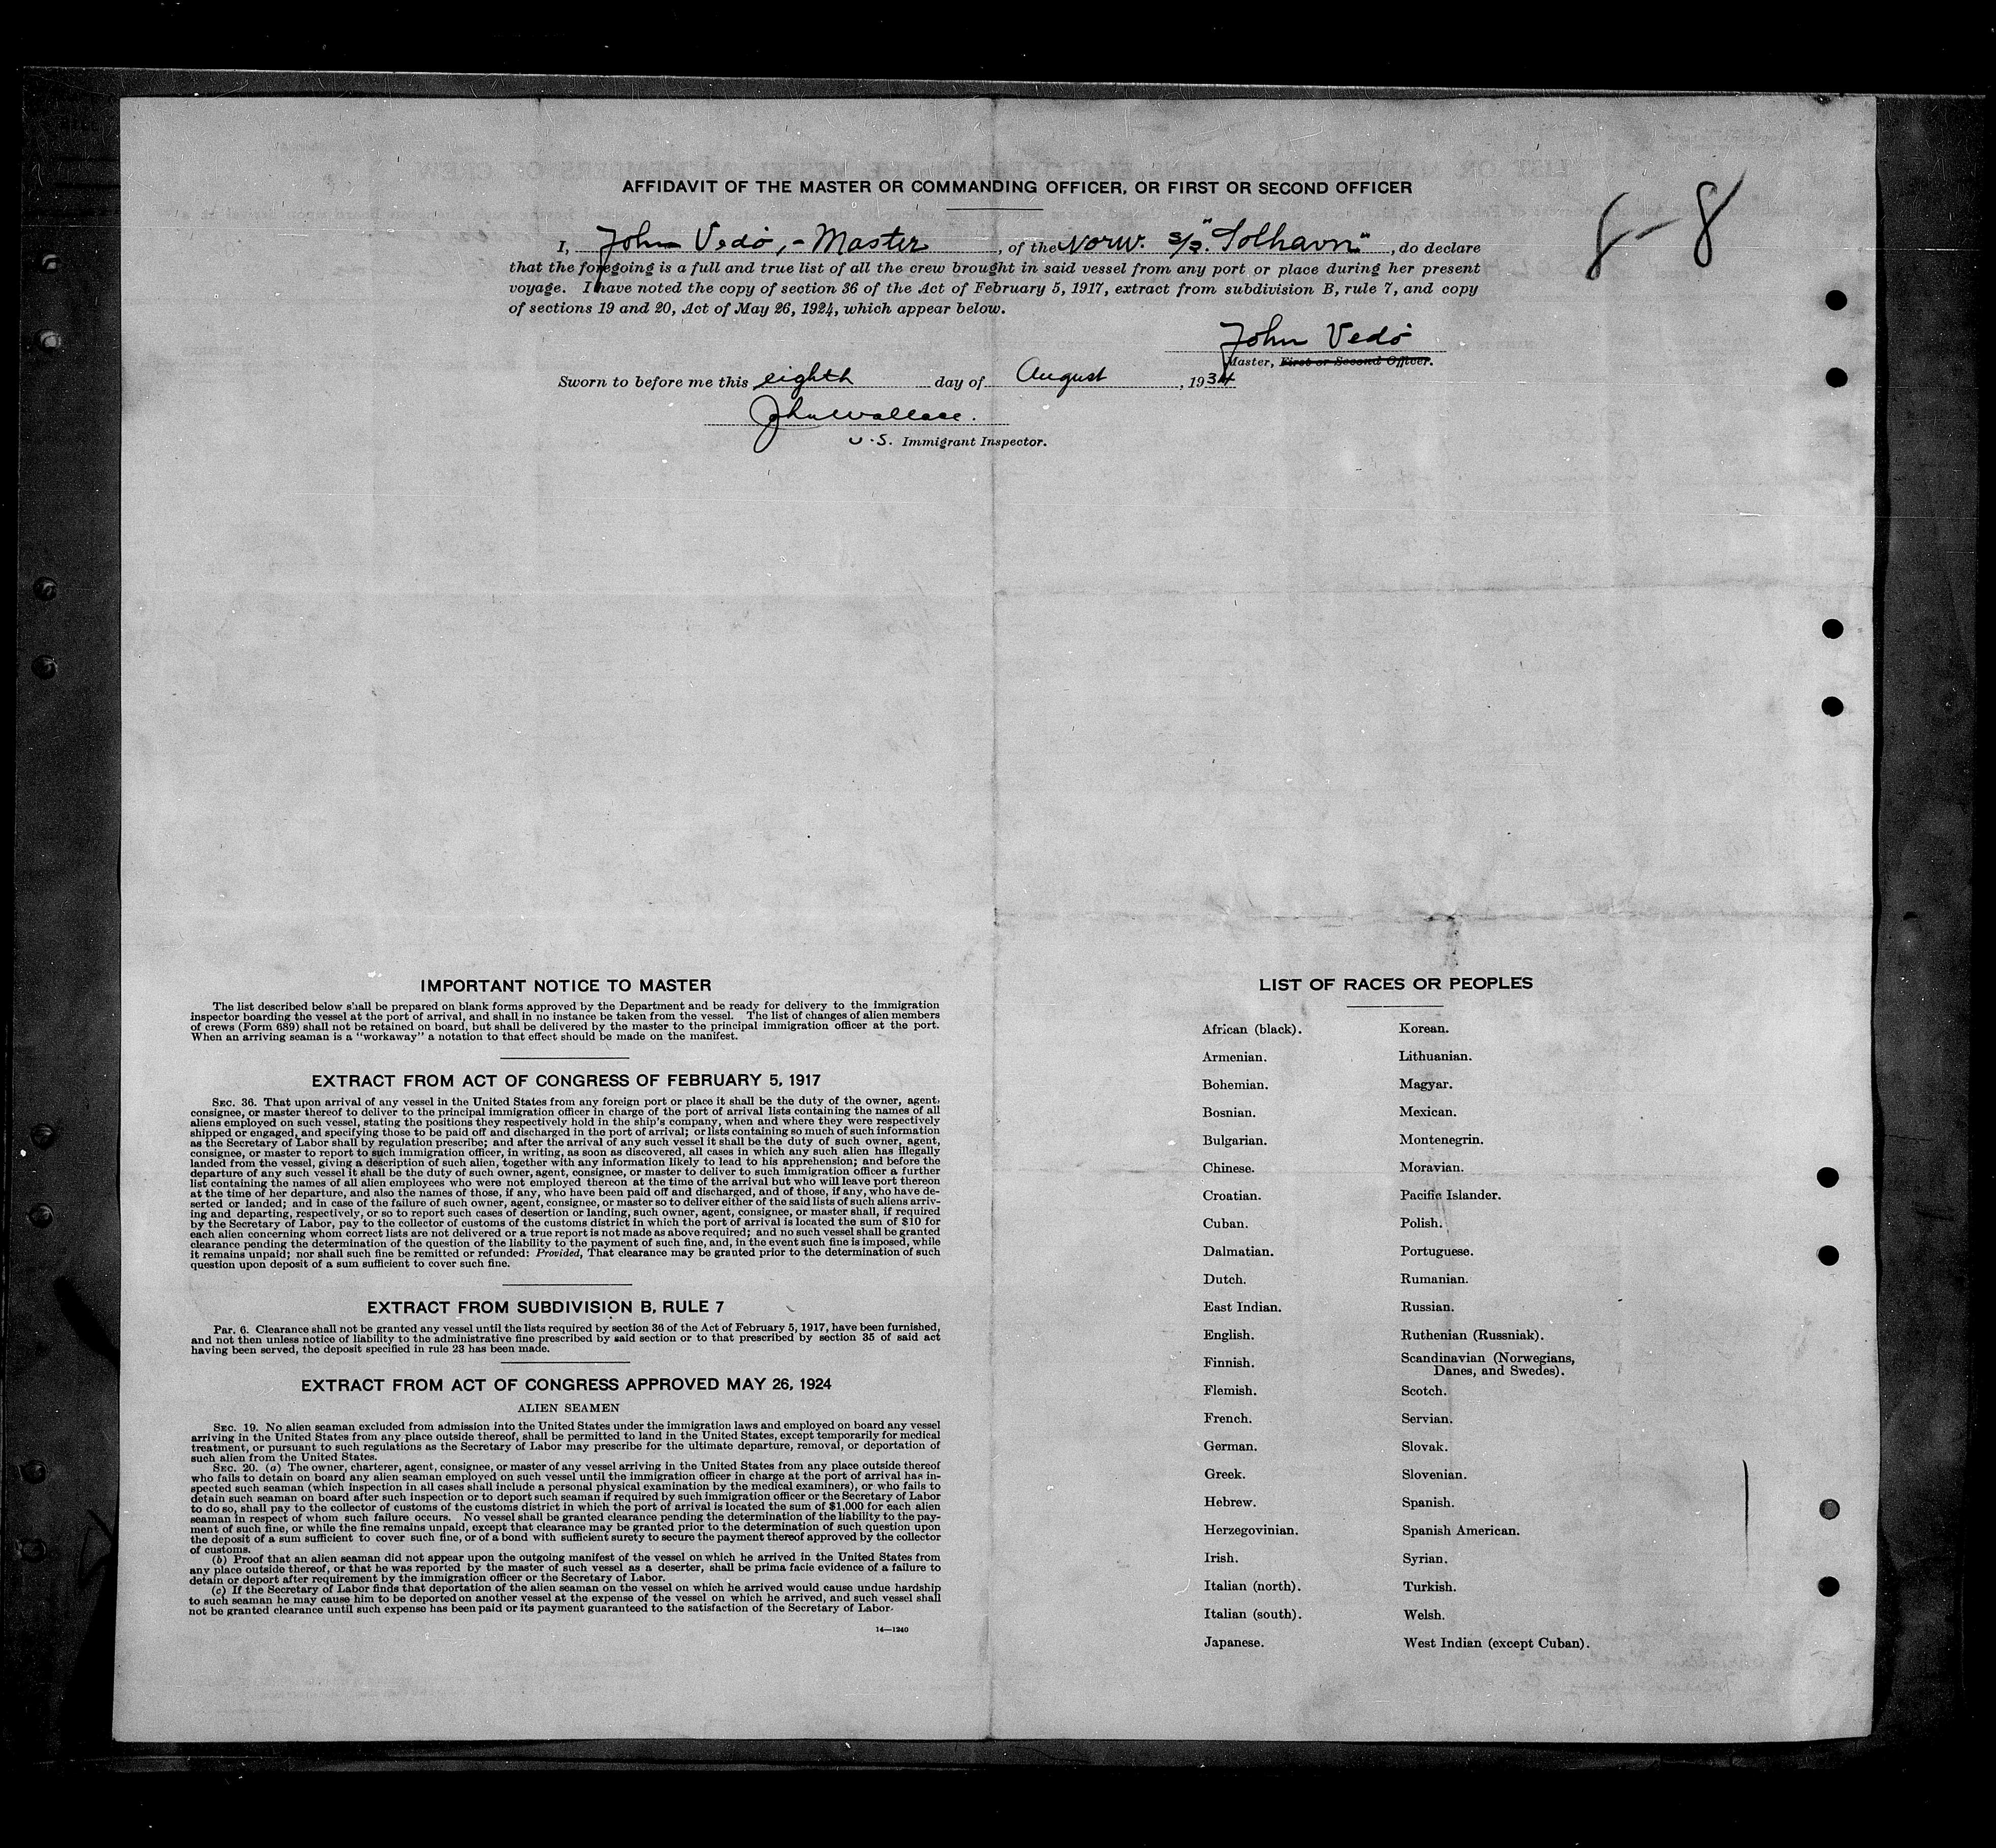 AFFIDAVIT OF THE MASTER OR COMMANDING OFFICER, OR FIRST OR SECOND OFFICER
8-8
I, John Vedö, - Master, of the Norw. s/s. "Solhavn", do declare
that the foregoing is a full and true list of all the crew brought in said vessel from any port or place during her present
voyage. I have noted the copy of section 36 of the Act of February 5, 1917, extract from subdivision B, rule 7, and copy
of sections 19 and 20, Act of May 26, 1924, which appear below.
John Vedö
Master, First or Second Officer.
Sworn to before me this eighth day of August, 1934
John Wallace.
U.S. Immigrant Inspector.
IMPORTANT NOTICE TO MASTER
The list described below shall be prepared on blank forms approved by the Department and be ready for delivery to the immigration
inspector boarding the vessel at the port of arrival, and shall in no instance be taken from the vessel. The list of changes of alien members
of crews (Form 689) shall not be retained on board, but shall be delivered by the master to the principal immigration officer at the port.
When an arriving seaman is a "workaway" a notation to that effect should be made on the manifest.
EXTRACT FROM ACT OF CONGRESS OF FEBRUARY 5, 1917
SEC. 36. That upon arrival of any vessel in the United States from any foreign port or place it shall be the duty of the owner, agent,
consignee, or master thereof to deliver to the principal immigration officer in charge of the port of arrival lists containing the names of all
aliens employed on such vessel, stating the positions they respectively hold in the ship's company, when and where they were respectively
shipped or engaged, and specifying those to be paid off and discharged in the port of arrival; or lists containing so much of such information
as the Secretary of Labor shall by regulation prescribe; and after the arrival of any such vessel it shall be the duty of such owner, agent,
consignee, or master to report to such immigration officer, in writing, as soon as discovered, all cases in which any such alien has illegally
landed from the vessel, giving a description of such alien, together with any information likely to lead to his apprehension; and before the
departure of any such vessel it shall be the duty of such owner, agent, consignee, or master to deliver to such immigration officer a further
list containing the names of all alien employees who were not employed thereon at the time of the arrival but who will leave port thereon
at the time of her departure, and also the names of those, if any, who have been paid off and discharged, and of those, if any, who have de-
serted or landed; and in case of the failure of such owner, agent, consignee, or master so to deliver either of the said lists of such aliens arriv-
ing and departing, respectively, or so to report such cases of desertion or landing, such owner, agent, consignee, or master shall, if required
by the Secretary of Labor, pay to the collector of customs of the customs district in which the port of arrival is located the sum of $10 for
each alien concerning whom correct lists are not delivered or a true report is not made as above required; and no such vessel shall be granted
clearance pending the determination of the question of the liability to the payment of such fine, and, in the event such fine is imposed, while
it remains unpaid; nor shall such fine be remitted or refunded: Provided, That clearance may be granted prior to the determination of such
question upon deposit of a sum sufficient to cover such fine.
EXTRACT FROM SUBDIVISION B, RULE 7
PAR. 6. Clearance shall not be granted any vessel until the lists required by section 36 of the Act of February 5, 1917, have been furnished,
and not then unless notice of liability to the administrative fine prescribed by said section or to that prescribed by section 35 of said act
having been served, the deposit specified in rule 23 has been made.
EXTRACT FROM ACT OF CONGRESS APPROVED MAY 26, 1924
ALIEN SEAMEN
SEC. 19. No alien seaman excluded from admission into the United States under the immigration laws and employed on board any vessel
arriving in the United States from any place outside thereof, shall be permitted to land in the United States, except temporarily for medical
treatment, or pursuant to such regulations as the Secretary of Labor may prescribe for the ultimate departure, removal, or deportation of
such alien from the United States.
SEC. 20. (a) The owner, charterer, agent, consignee, or master of any vessel arriving in the United States from any place outside thereof
who fails to detain on board any alien seaman employed on such vessel until the immigration officer in charge at the port of arrival has in-
spected such seaman (which inspection in all cases shall include a personal physical examination by the medical examiners), or who fails to
detain such seaman on board after such inspection or to deport such seaman if required by such immigration officer or the Secretary of Labor
to do so, shall pay to the collector of customs of the customs district in which the port of arrival is located the sum of $1,000 for each alien
seaman in respect of whom such failure occurs. No vessel shall be granted clearance pending the determination of the liability to the pay-
ment of such fine, or while the fine remains unpaid, except that clearance may be granted prior to the determination of such question upon
the deposit of a sum sufficient to cover such fine, or of a bond with sufficient surety to secure the payment thereof approved by the collector
of customs.
(b) Proof that an alien seaman did not appear upon the outgoing manifest of the vessel on which he arrived in the United States from
any place outside thereof, or that he was reported by the master of such vessel as a deserter, shall be prima facie evidence of a failure to
detain or deport after requirement by the immigration officer or the Secretary of Labor.
(c) If the Secretary of Labor finds that deportation of the alien seaman on the vessel on which he arrived would cause undue hardship
to such seaman he may cause him to be deported on another vessel at the expense of the vessel on which he arrived, and such vessel shall
not be granted clearance until such expense has been paid or its payment guaranteed to the satisfaction of the Secretary of Labor.
14—1240
LIST OF RACES OR PEOPLES
African (black).
Armenian.
Bohemian.
Bosnian.
Bulgarian.
Chinese.
Croatian.
Cuban.
Dalmatian.
Dutch.
East Indian.
English.
Finnish.
Flemish.
French.
German.
Greek.
Hebrew.
Herzegovinian.
Irish.
Italian (north).
Italian (south).
Japanese.
Korean.
Lithuanian.
Magyar.
Mexican.
Montenegrin.
Moravian.
Pacific Islander.
Polish.
Portuguese.
Rumanian.
Russian.
Ruthenian (Russniak).
Scandinavian (Norwegians,
Danes, and Swedes).
Scotch.
Servian.
Slovak.
Slovenian.
Spanish.
Spanish American.
Syrian.
Turkish.
Welsh.
West Indian (except Cuban).